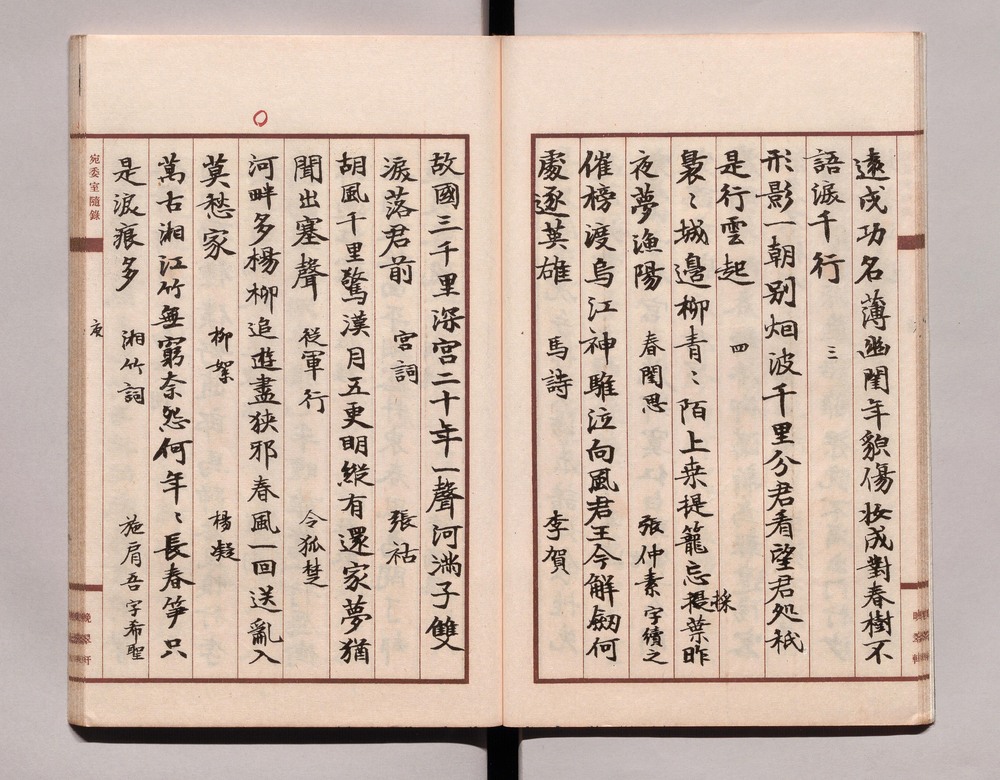 遠戍功名薄幽閨年貌傷妝成對春樹不
語淚千行 三
形影一朝別烟波千里分君看望君処秖
是行雲起 四
裊〻城邊柳青〻陌上桒提籠忘採葉昨
夜夢漁陽 春閨思 張仲素 字績之
催榜渡烏江神騅泣向風君王今解劔何
處逐英雄 馬詩 李賀
故國三千里深宮二十年一聲河滿子雙
淚落君前 宮詞 張祜
胡風千里驚漢月五更明縱有還家夢猶
聞出塞聲 從軍行 令狐楚
河畔多楊柳追遊盡狹邪春風一回送亂入
莫愁家 柳絮 楊凝
萬古湘江竹無窮奈怨何年〻長春笋只
是淚痕多 湘竹詞 施肩吾 字希聖
宛委室隨錄